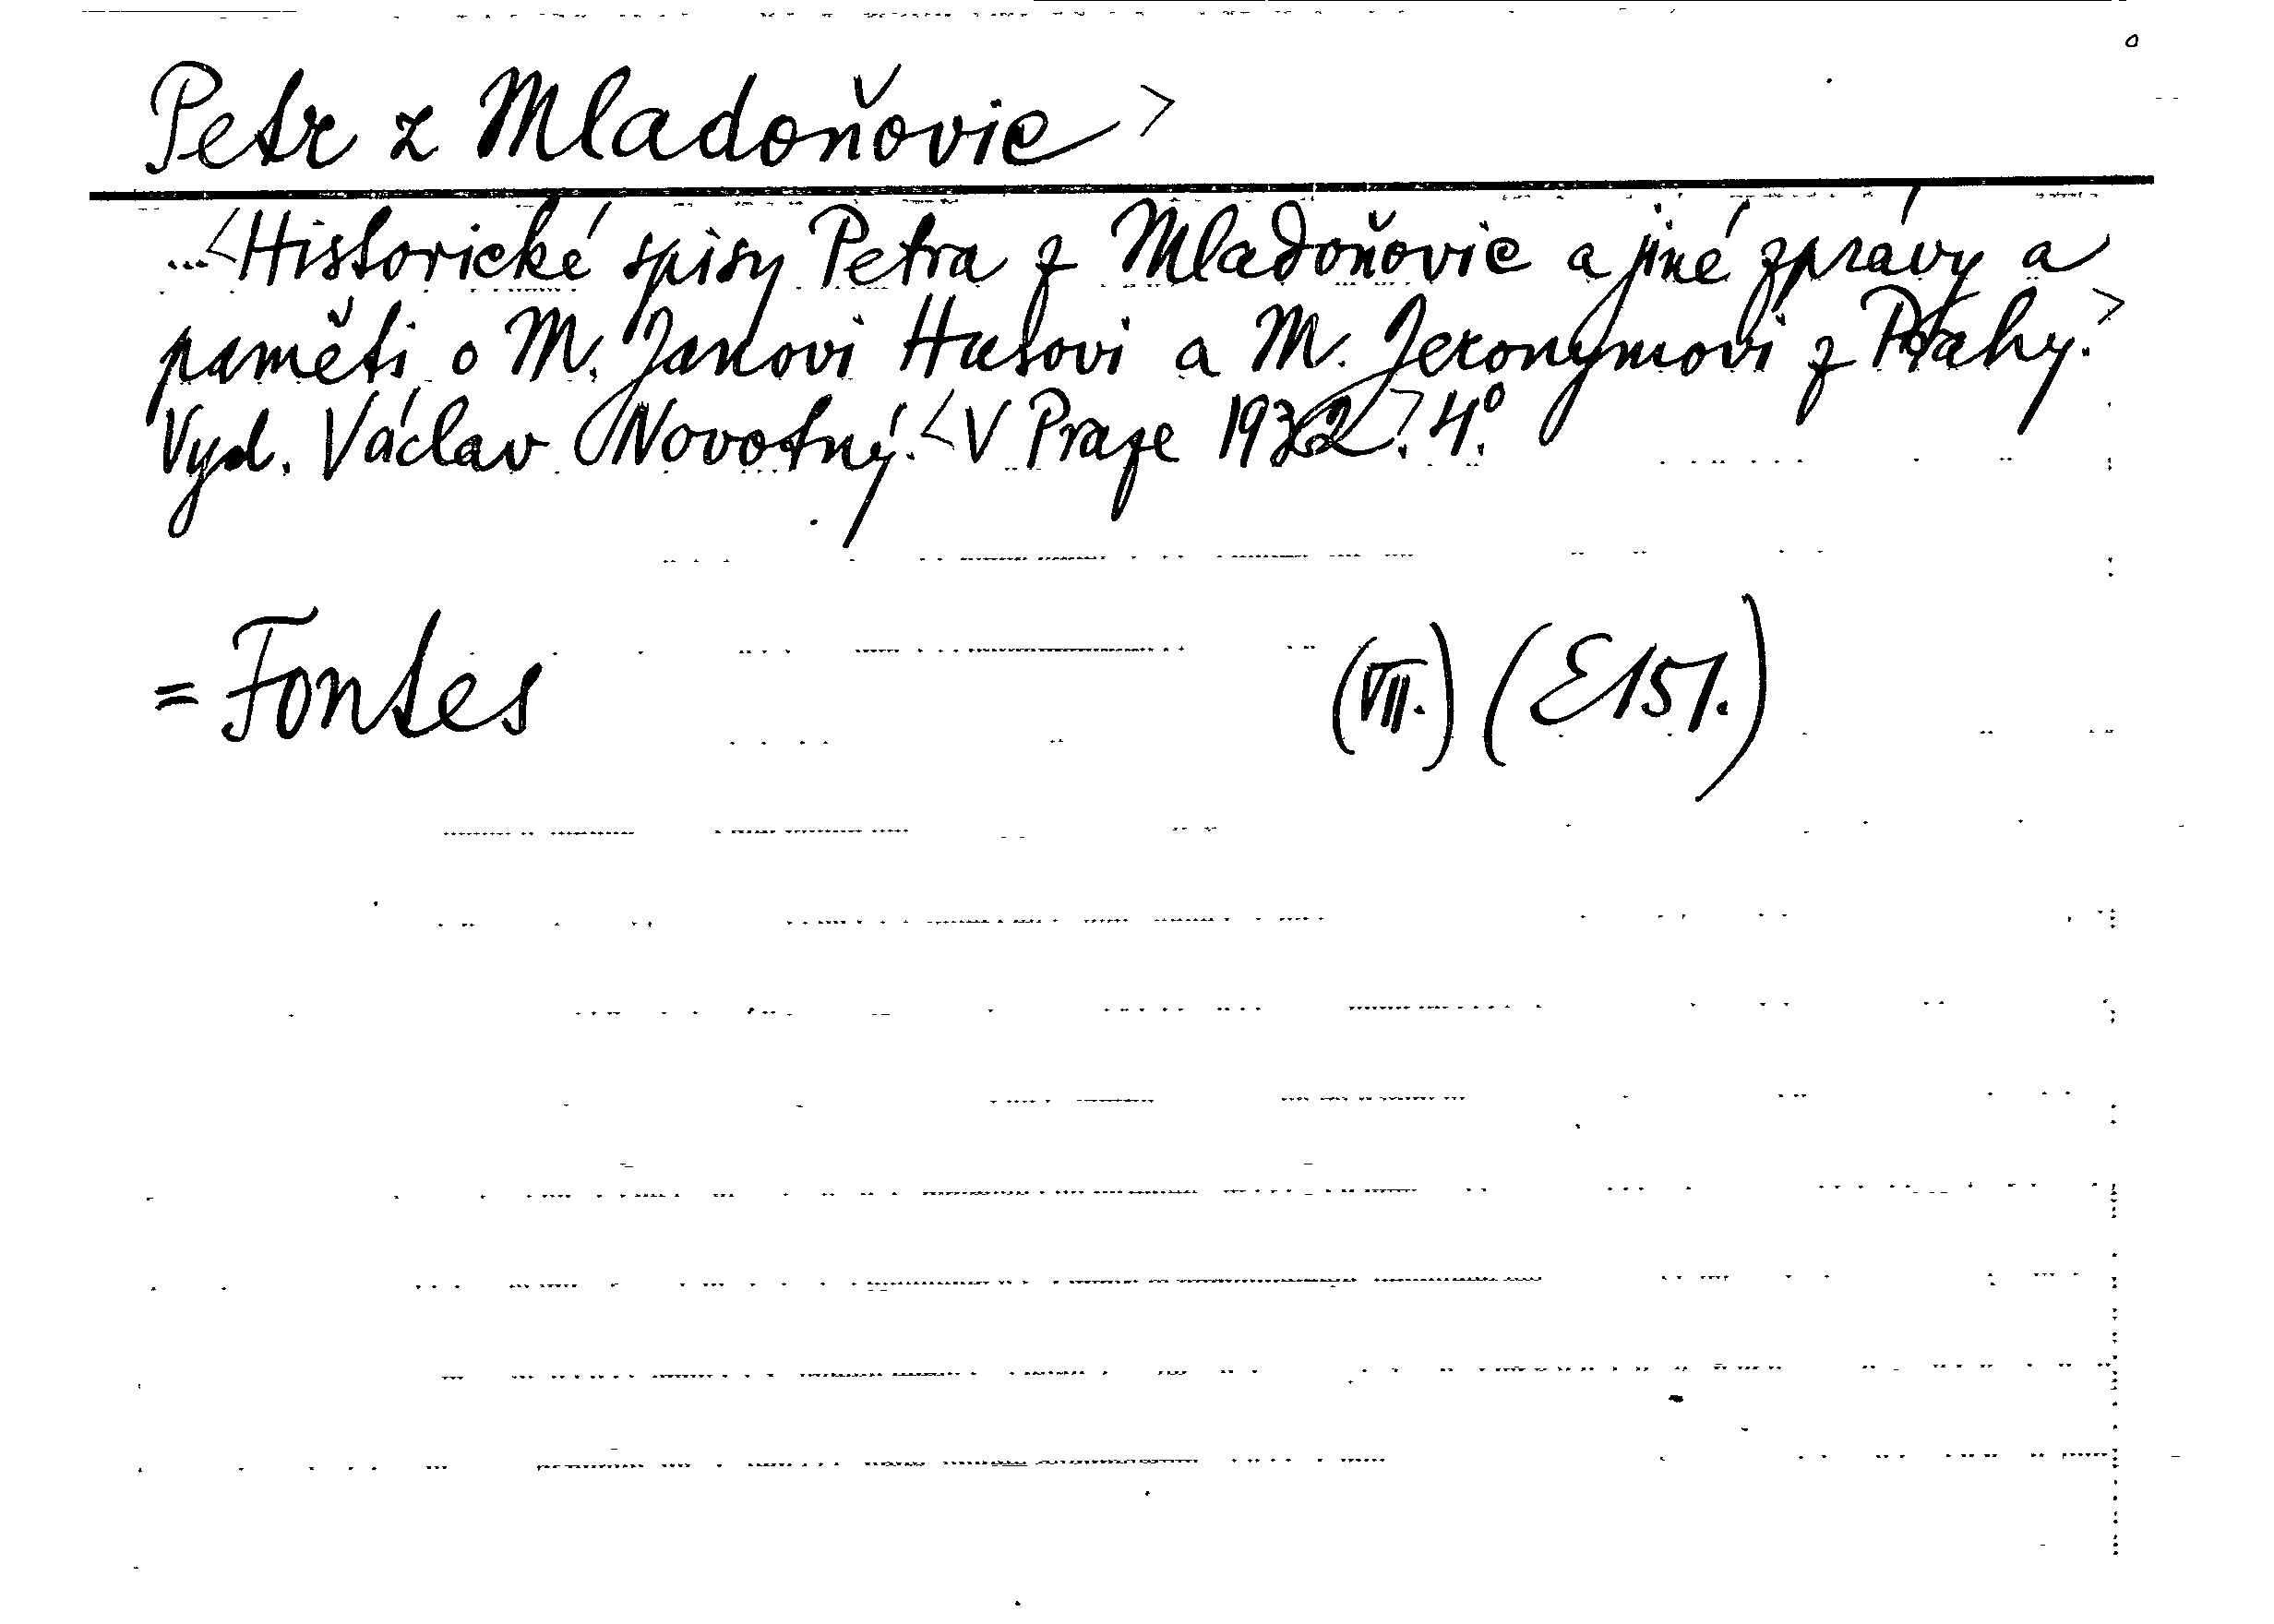 Petr z Mladoňovic >
...<Historické spisy Petra z Mladoňovic a jiné zprávy a
paměti o M. Janovi Husovi a M. Jeronymovi z Prahy.>
Vyd. Václav Novotný. <V Praze 1932>. 4°.
= Fontes (VII.) (E 151.)